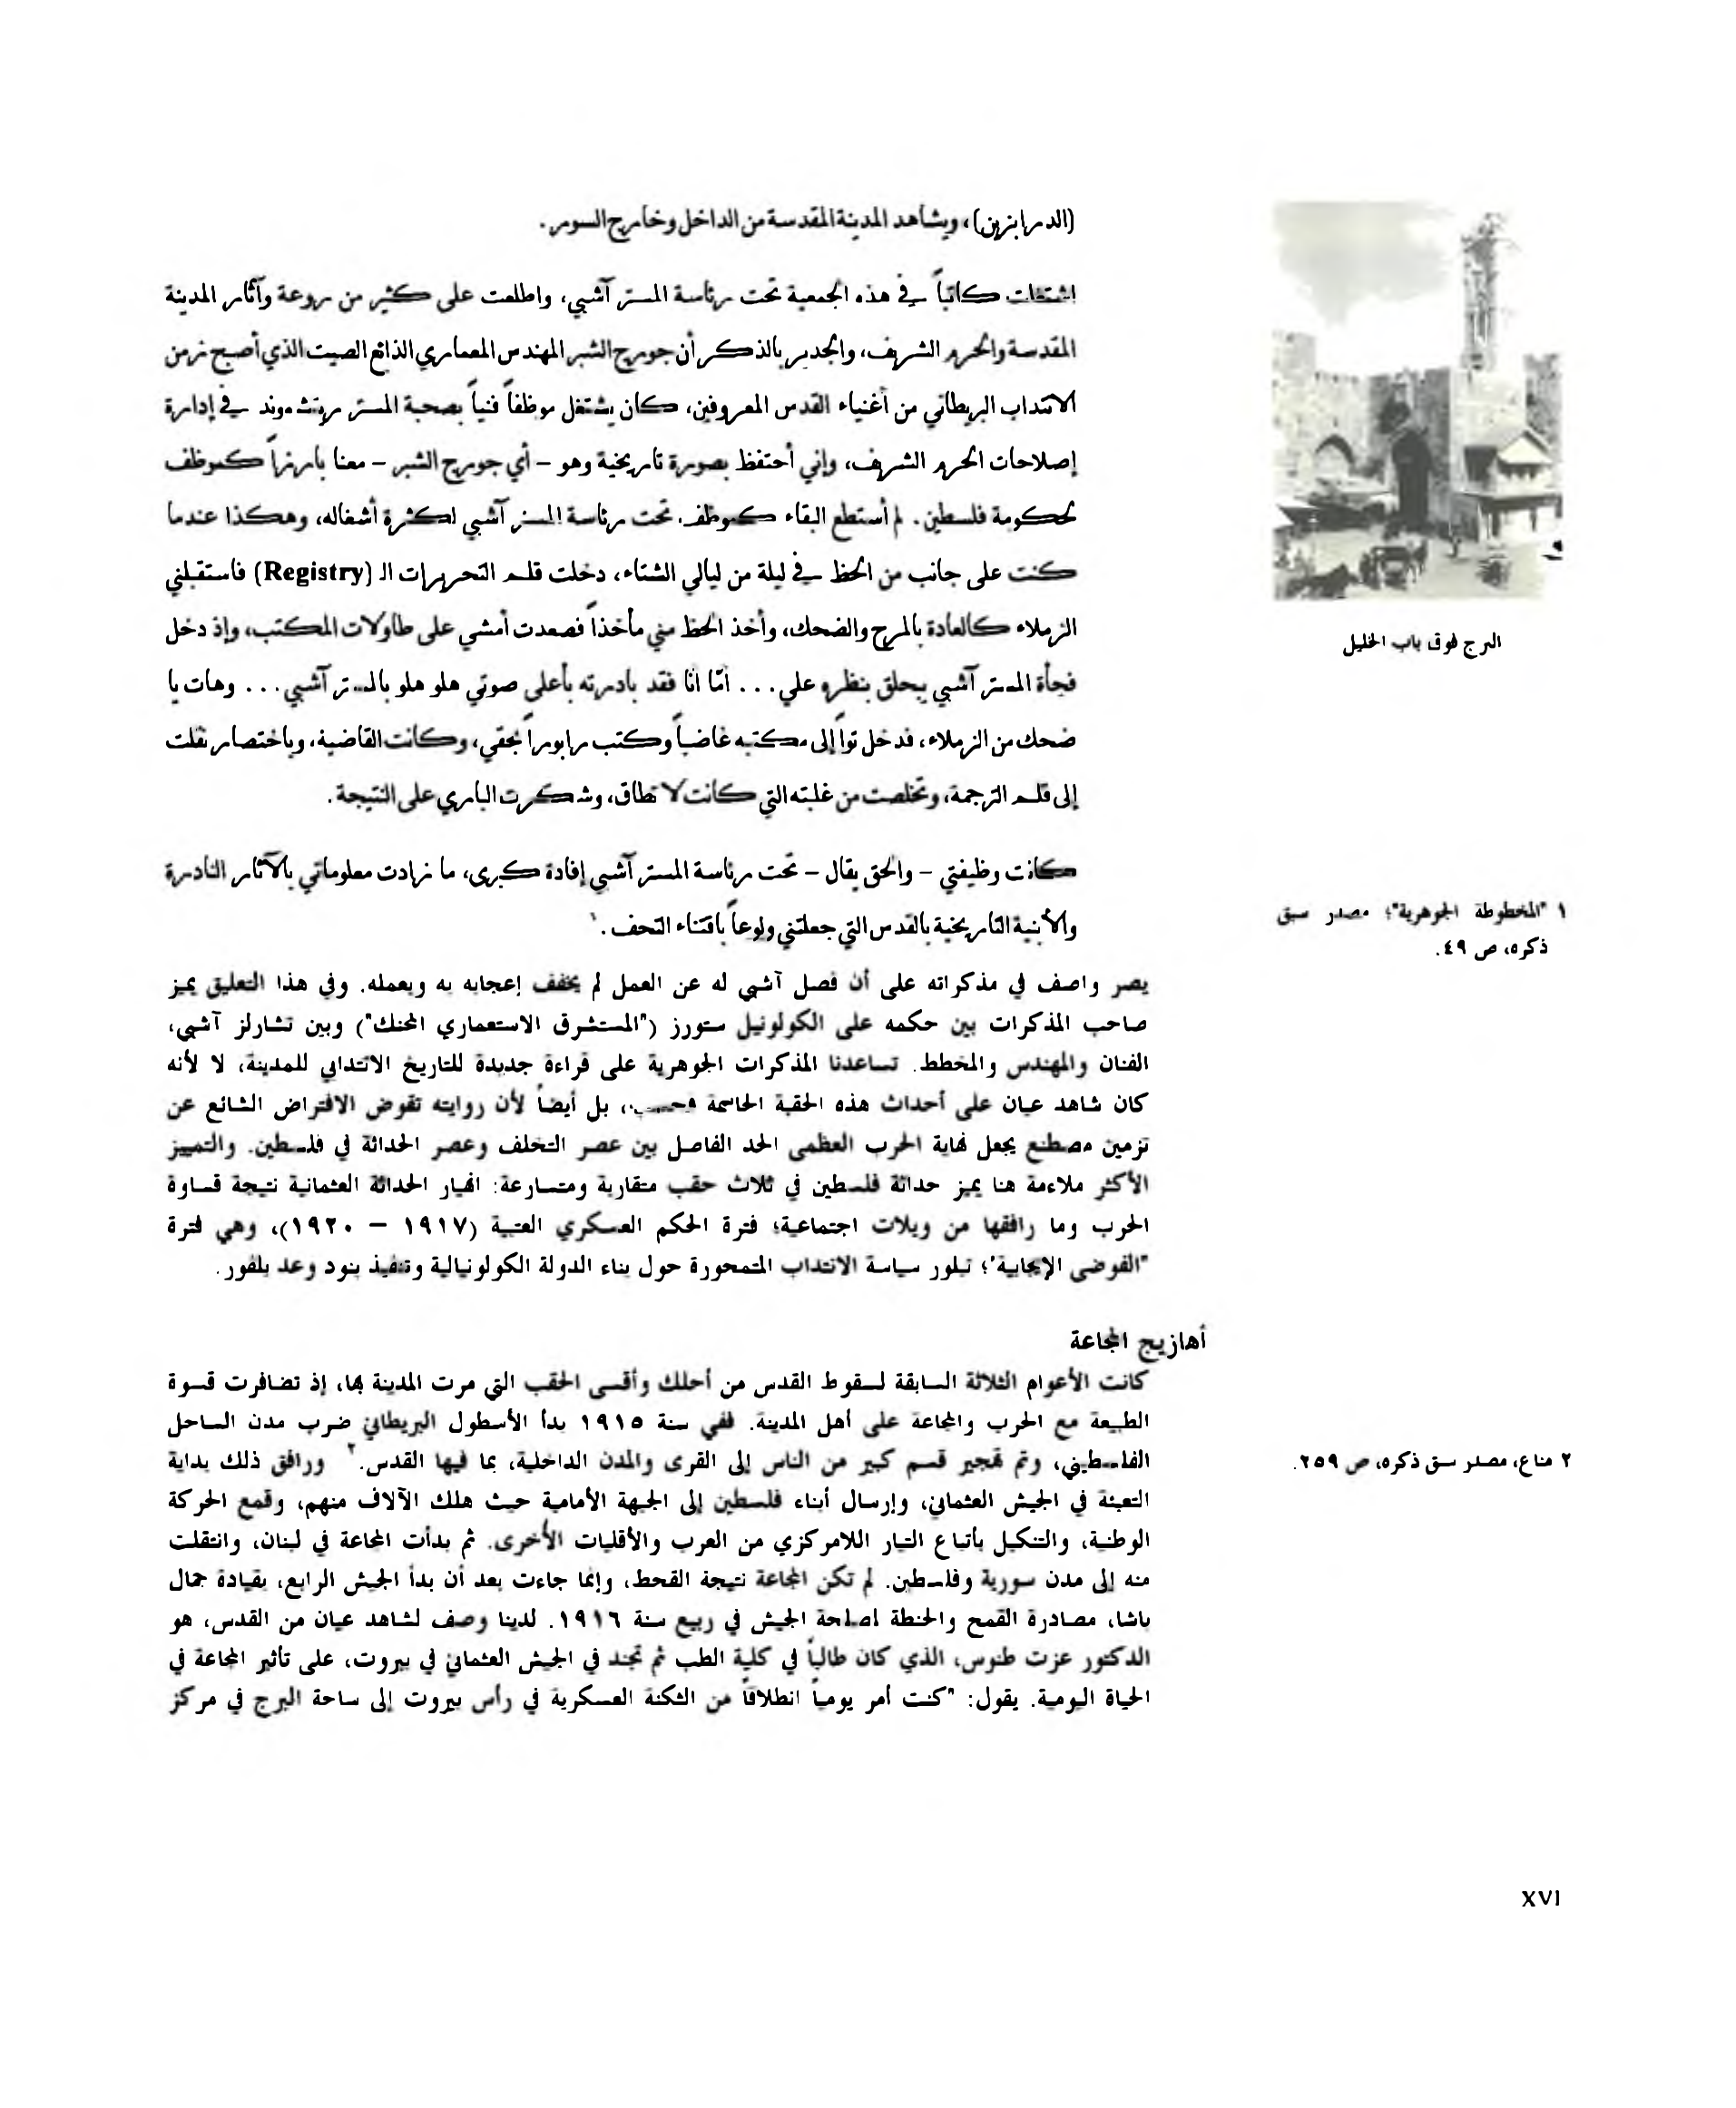 (الدرابزين)، ويشاهد المدينة المقدسة من الداخل وخارج السور.
اشتغلت كاتباً في هذه الجمعية تحت رئاسة المستر آشبي، واطلعت على كثير من روعة وآثار المدينة
المقدسة والحرم الشريف، والجدير بالذكر أن جورج الشبر المهندس المعماري الذائع الصيت الذي أصبح زمن
الانتداب البريطاني من أغنياء القدس المعروفين، كان يشتغل موظفاً فنياً بصحبة المستر ريتشموند في إدارة
إصلاحات الحرم الشريف، وإني أحتفظ بصورة تاريخية وهو – أي جورج الشبر – معنا بارزاً كموظف
لحكومة فلسطين. لم أستطع البقاء كموظف تحت رئاسة المستر آشبي لكثرة أشغاله، وهكذا عندما
كنت على جانب من الحظ في ليلة من ليالي الشتاء، دخلت قلم التحريرات الـ (Registry) فاستقبلني
الزملاء كالعادة بالمرح والضحك، وأخذ الحظ مني مأخذاً فصعدت أمشي على طاولات المكتب، وإذ دخل
فجأة المستر آشبي يحلق بنظره علي... أمّا أنا فقد بادرته بأعلى صوتي هلو هلو بالمستر آشبي... وهات يا
ضحك من الزملاء، فدخل تواً إلى مكتبه غاضباً وكتب رابوراً بحقي، وكانت القاضية، وباختصار نقلت
إلى قلم الترجمة، وتخلصت من غلبته التي كانت لا تطاق، وشكرت الباري على النتيجة.
كانت وظيفتي – والحق يقال – تحت رئاسة المستر آشبي إفادة كبرى، ما زادت معلوماتي بالآثار النادرة
والأبنية التاريخية بالقدس التي جعلتني ولوعاً باقتناء التحف.١
يصر واصف في مذكراته على أن فصل آشبي له عن العمل لم يخفف إعجابه به وبعمله. وفي هذا التعليق يميز
صاحب المذكرات بين حكمه على الكولونيل ستورز ("المستشرق الاستعماري المحنك") وبين تشارلز آشبي،
الفنان والمهندس والمخطط. تساعدنا المذكرات الجوهرية على قراءة جديدة للتاريخ الانتدابي للمدينة، لا لأنه
كان شاهد عيان على أحداث هذه الحقبة الحاسمة فحسب، بل أيضاً لأن روايته تقوض الافتراض الشائع عن
تزمين مصطنع يجعل نهاية الحرب العظمى الحد الفاصل بين عصر التخلف وعصر الحداثة في فلسطين. والتمييز
الأكثر ملاءمة هنا يميز حداثة فلسطين في ثلاث حقب متقاربة ومتسارعة: انهيار الحداثة العثمانية نتيجة قساوة
الحرب وما رافقها من ويلات اجتماعية؛ فترة الحكم العسكري العتبية (١٩١٧ – ١٩٢٠)، وهي فترة
"الفوضى الإيجابية"؛ تبلور سياسة الانتداب المتمحورة حول بناء الدولة الكولونيالية وتنفيذ بنود وعد بلفور.
أهازيج المجاعة
كانت الأعوام الثلاثة السابقة لسقوط القدس من أحلك وأقسى الحقب التي مرت المدينة بها، إذ تضافرت قسوة
الطبيعة مع الحرب والمجاعة على أهل المدينة. ففي سنة ١٩١٥ بدأ الأسطول البريطاني ضرب مدن الساحل
الفلسطيني، وتم تهجير قسم كبير من الناس إلى القرى والمدن الداخلية، بما فيها القدس.٢ ورافق ذلك بداية
التعبئة في الجيش العثماني، وإرسال أبناء فلسطين إلى الجبهة الأمامية حيث هلك الآلاف منهم، وقمع الحركة
الوطنية، والتنكيل بأتباع التيار اللامركزي من العرب والأقليات الأخرى. ثم بدأت المجاعة في لبنان، وانتقلت
منه إلى مدن سورية وفلسطين. لم تكن المجاعة نتيجة القحط، وإنما جاءت بعد أن بدأ الجيش الرابع، بقيادة جمال
باشا، مصادرة القمح والحنطة لمصلحة الجيش في ربيع سنة ١٩١٦. لدينا وصف لشاهد عيان من القدس، هو
الدكتور عزت طنوس، الذي كان طالباً في كلية الطب ثم تجند في الجيش العثماني في بيروت، على تأثير المجاعة في
الحياة اليومية. يقول: "كنت أمر يومياً انطلاقاً من الثكنة العسكرية في رأس بيروت إلى ساحة البرج في مركز
البرج فوق باب الخليل
١ "المخطوطة الجوهرية"؛ مصدر سبق
ذكره، ص ٤٩.
٢ مناع، مصدر سبق ذكره، ص ٢٥٩.
XVI